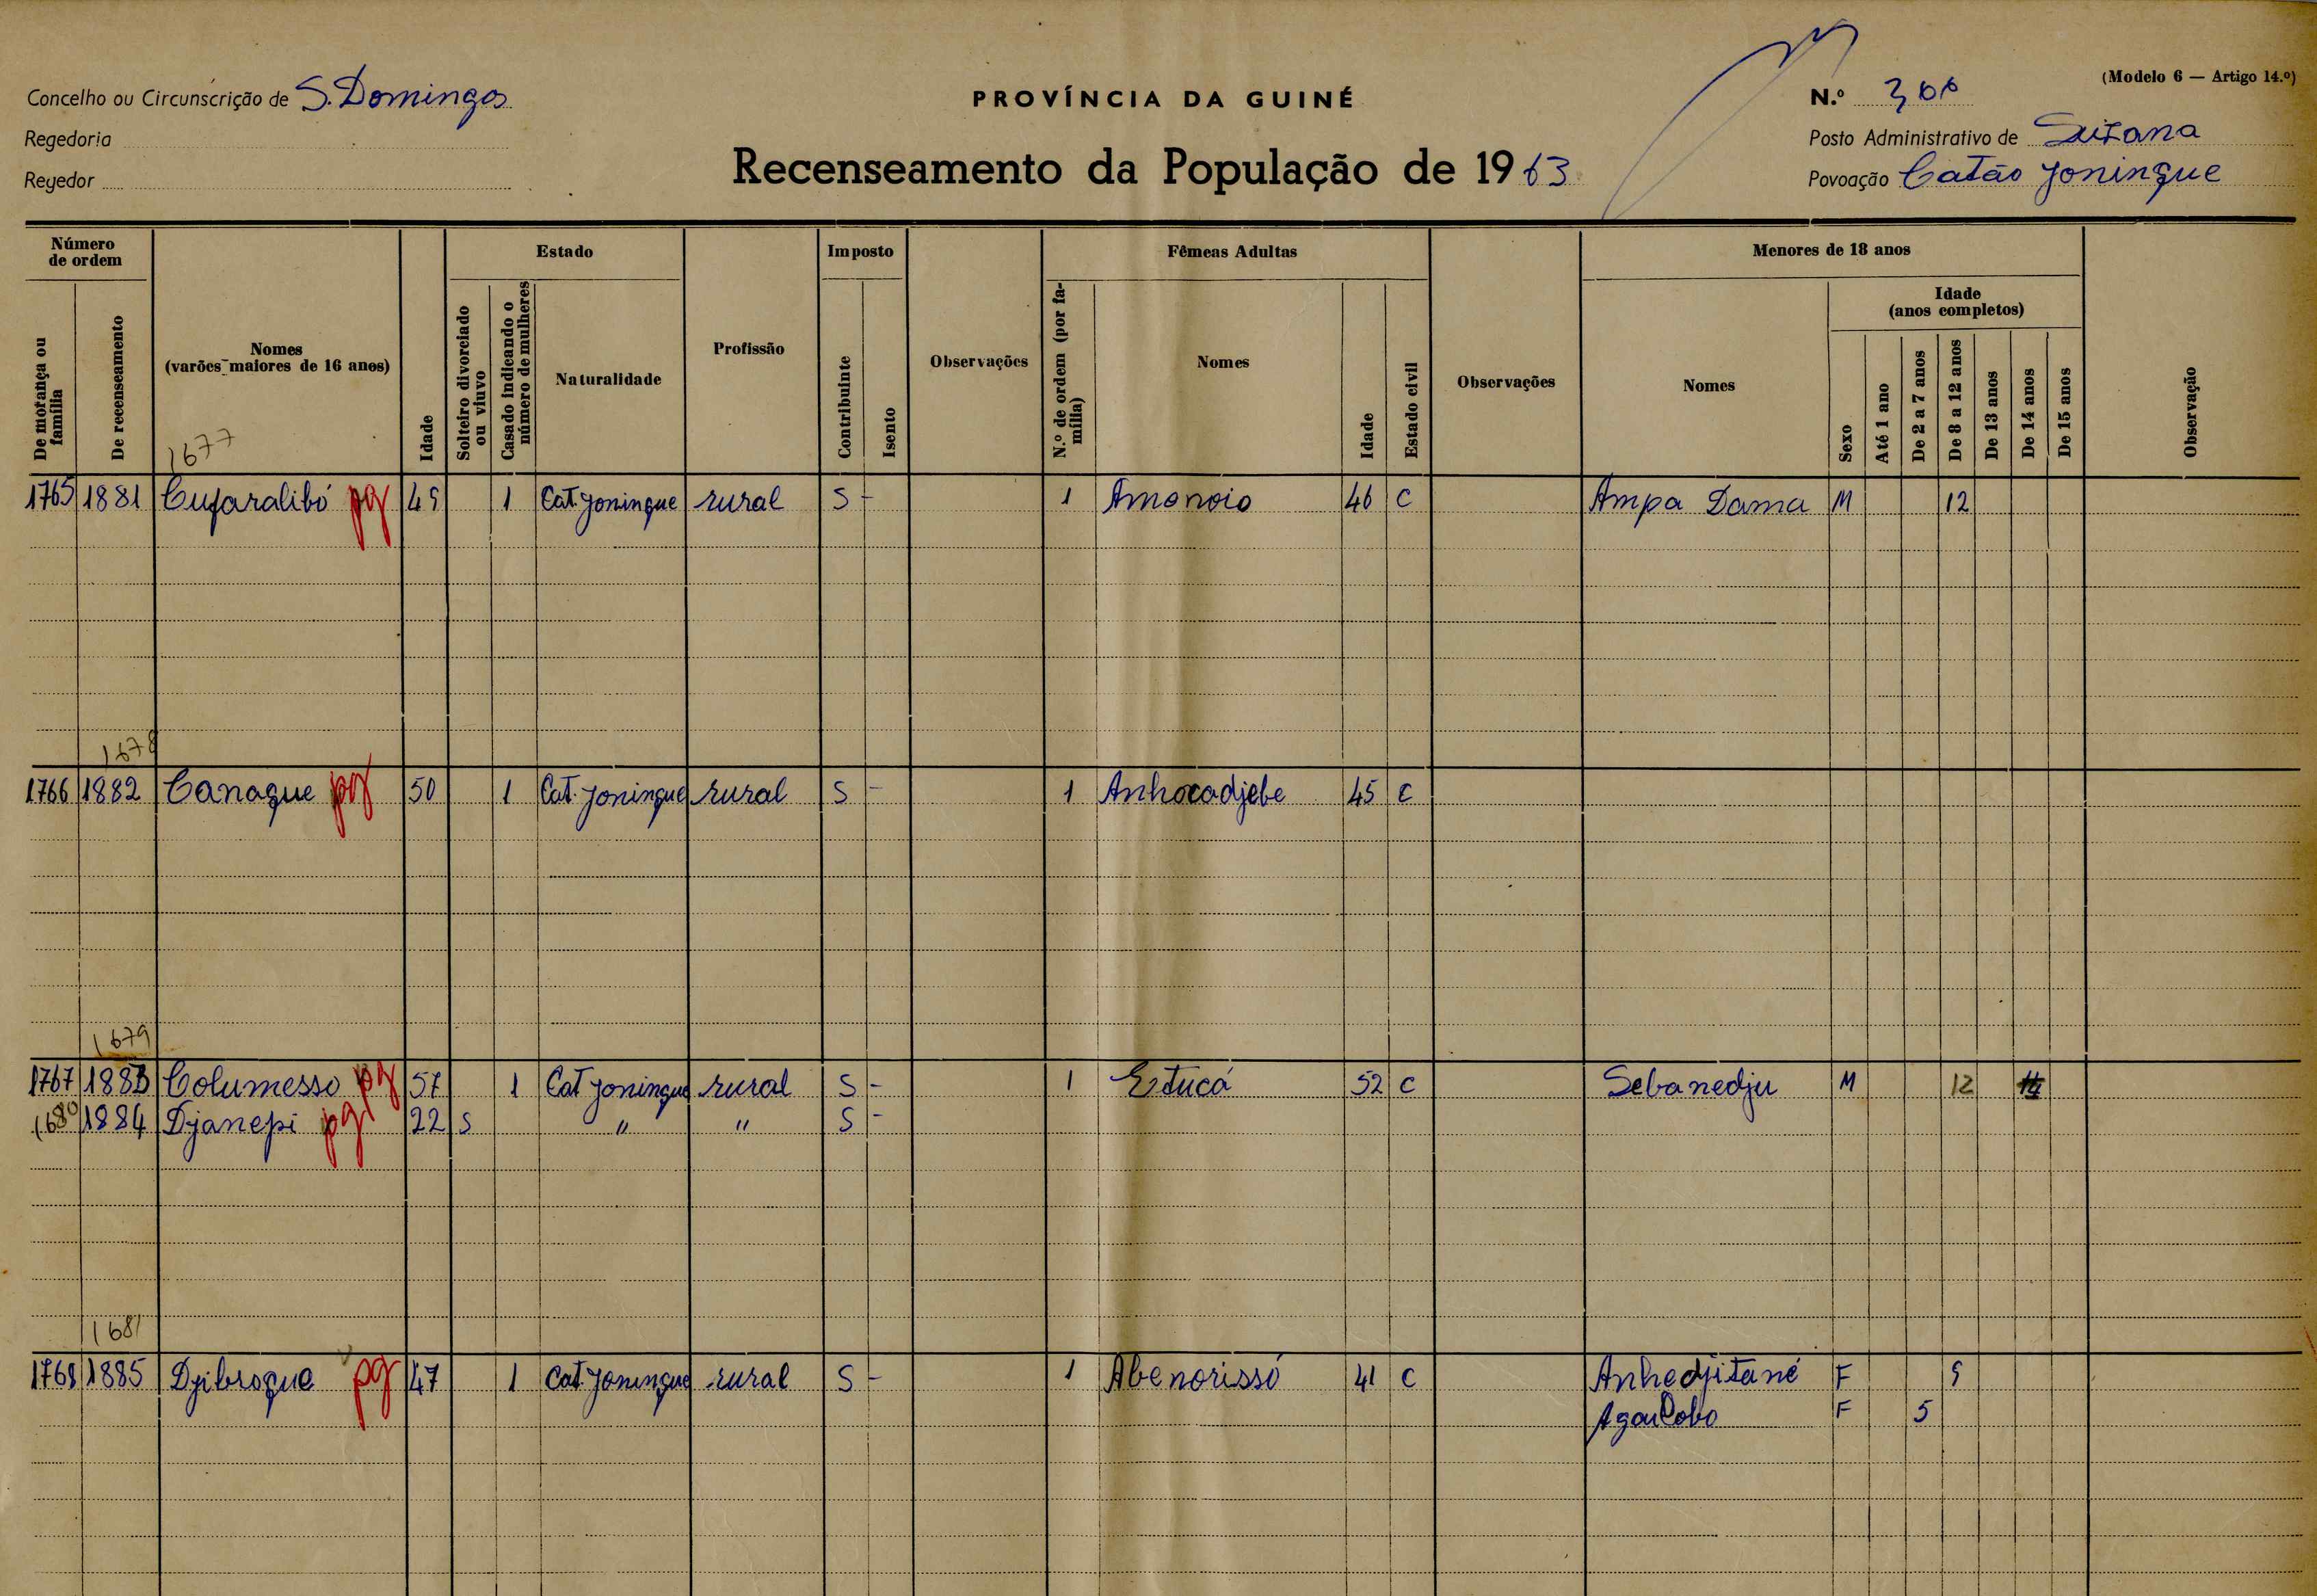 (Modelo 6 — Artigo 14.º)
Concelho ou Circunscrição de S. Domingos PROVÍNCIA DA GUINÉ N.º 300
Regedoria Posto Administrativo de Suzana
Regedor Recenseamento da População de 1963 Povoação Catão Joninque
Número de ordem Estado Imposto Fêmeas Adultas Menores de 18 anos
De morança ou família De recenseamento Nomes (varões maiores de 16 anos) Idade Solteiro divorciado ou viuvo Casado indicando o número de mulheres Naturalidade Profissão Contribuinte Isento Observações N.º de ordem (por família) Nomes Idade Estado civil Observações Nomes Sexo Idade (anos completos) Até 1 ano De 2 a 7 anos De 8 a 12 anos De 13 anos De 14 anos De 15 anos Observação
1677
1765 1881 Cufaralibó pg 49 1 Cat. Joninque rural S - 1 Amonoio 46 C Ampa Dama M 12
1678
1766 1882 Canaque pg 50 1 Cat. Joninque rural S - 1 Anhocadjebe 45 C
1679
1767 1883 Columesso pg 57 1 Cat Joninque rural S - 1 Estucá 52 C Sebanedju M 12
1680 1884 Djanepi pg 22 S " " S -
1681
1768 1885 Djibroque pg 47 1 Cat. Joninque rural S - 1 Abenorissó 41 C Anhedjitané F 9
F 5